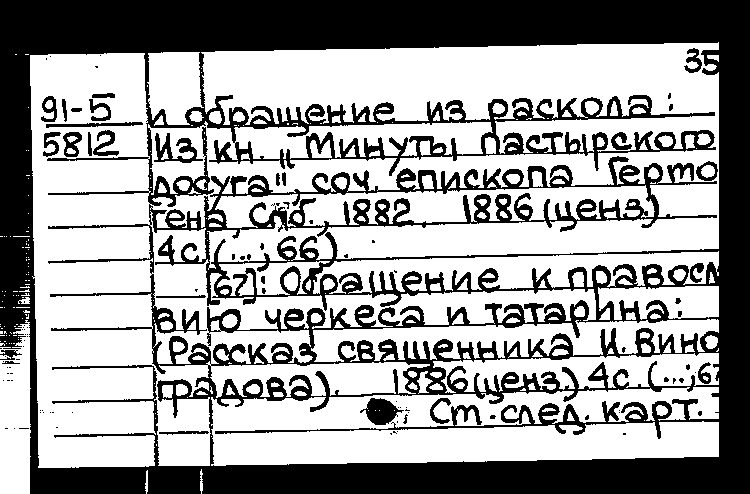 35
91-5 и обращение из раскола:
5812 Из кн. „Минуты пастырского
досуга", соч. епископа Гермо
гена, Спб., 1882. 1886 (ценз.).
4с. (...; 66).
[67]: Обращение к правосл
вию черкеса и татарина:
(Рассказ священника И. Вино
градова). 1886 (ценз.). 4с. (...; 67
См. след. карт.